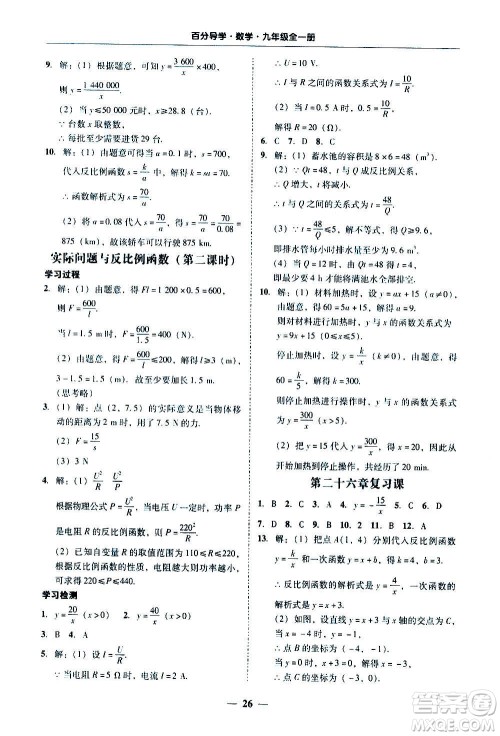 百分导学·数学·九年级全一册
9. 解：（1）由题意可得 y=3 600/x
则 y=1 440 000/x.
（2）由题意可得，x≥28.8（台）
∵ 台数 x 取正整数，
∴ 每批至少需要进货 29 台.
10. 解：（1）由题意可得当 a=0.1 时，s=700，
代入反比例函数 s=k/a 中，解得 k=70
∴ 函数解析式为 s=70/a
（2）将 a=0.08 代入 s=70/a 得：s=70/0.08=
875（km），故该轿车可以行驶 875（km）
实际问题与反比例函数（第二课时）
学习过程
1. 解：（1）由题意，得 Fl=1 200×0.5，则 F=600/l，
当 l=1.5 m 时，F=600/1.5=400 N.
（2）由题意，得 F=600/l≤200，解得 l≥3（m）
3-1.5=1.5（m），故至少加长 1.5 m.
（思考略）
3. （1）解：点（2，7.5）的实际意义是当物体移
动的距离为 2 m 时，用了 7.5 N 的力.
（2）F=15/s
（3）3 N
4. 解：（1）
根据物理公式 P=U²/R，得函数式 P=220²/R，即输
出功率 P 是电阻 R 的反比例函数 P=220²/R.
（2）已知自变量 R 的取值范围为 110≤R≤
220，故根据反比例函数性质，电阻越大则功
率越小，得用电器功率 P 的范围为 220≤P≤440.
学习检测
1. y=20/x（x>0） 2. y=40/x（x>0）
3. B 4. A
5. 解：（1）∵ I=U/R
∵ 当电阻 R=5 Ω 时，电流 I=2 A.
∴ U=10（V）
∴ I 与 R 之间的函数关系式为 I=10/R.
（2）当 I=0.5 A 时，0.5=10/R，
解得 R=20（Ω）
6. C 7. D 8. C
9. 解：（1）蓄水池的容积是 8×6=48（m³）
（2）∵ Qt=48，Q 与 t 成反比例关系.
∴ Q 增大，t 将减少.
（3）t 与 Q 之间的函数关系式为 t=48/Q.
（4）∵ t=48/Q≤5，解得 Q≥9.6，
即排水管每小时排水量至少为 9.6 m³.
（5）当 Qt=48，Q=12 时，t=4（h）
即最少用 4 h 才能将满池水全部排空.
10. 解：（1）材料加热时，设 y=ax+15（a≠0），
由题意得 60=5a+15，解得 a=9，
则对材料进行加热时，y 与 x 的函数关系式为
y=9x+15（0≤x≤5）.
停止加热时，设 y=k/x（k≠0），由题意得
60=k/5，解得 k=300，
则停止加热进行操作时，y 与 x 的函数关系式
为 y=300/x（x≥5）
（2）把 y=15 代入 y=300/x，得 x=20
第二十六章复习课
1. B 2. C 3. A 4. y=-15/x 5. C 6. D
7. D 8. B 9. A 10. A 11. D 12. C
13. 解：（1）把点 A（4，1）分别代入反比例函数
y=k/x，一次函数 y=x+b，得 k=1×4，1+b=4，
解得 k=4，b=3，
∴ 反比例函数的解析式是 y=4/x，一次函数
解析式是 y=x+3
（2）如图，设直线 y=x+3 与 y 轴的交点为
C，当 x=-4 时，y=-1，∴ B（-4，-1），
当 x=0 时，y=3，∴ C（0，3）
26